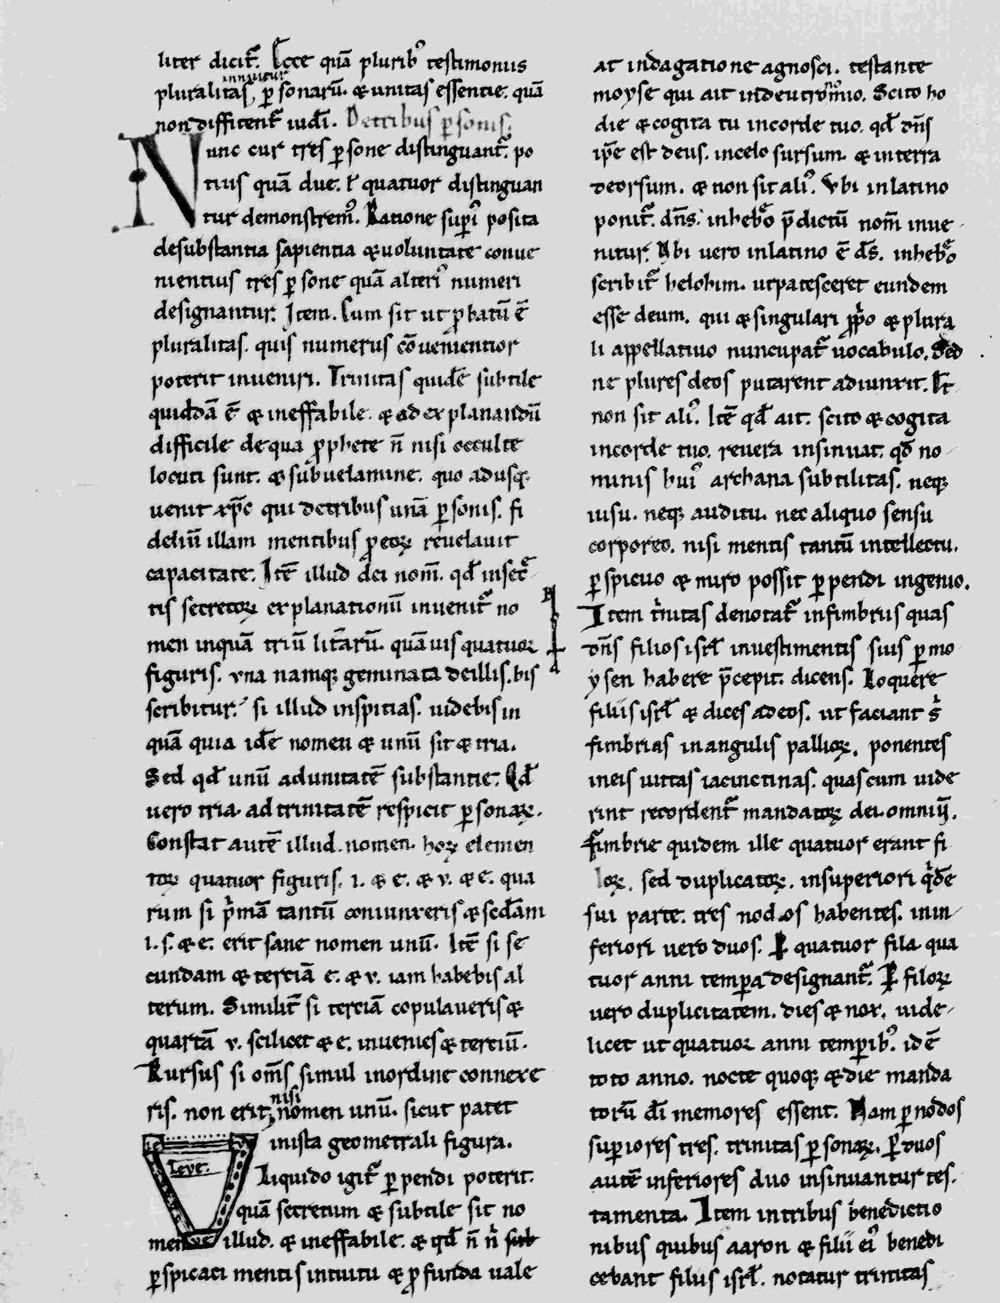 liter dicit᷑. Ecce quā plurib⁹ testimoniis
innuitur
pluralitas, ꝑsonarū. & unitas essentie. quā
non diffitent᷑ iudi̅. De tribus ꝑsonis.
Nunc cur tres ꝑsone distinguant᷑. po
tius quā due. ł quatuor distinguan
tur demonstrem⁹. Ratione supi᷑ posita
de substantia sapientia & uoluntate conue
nientius tres ꝑsone quā alteri⁹ numeri
designantur. Item. Cum sit ut ꝓbatū ē
pluralitas. quis numerus cōuenientior
poterit inueniri. Trinitas quidē subtile
quiddā ē & ineffabile. & ad explanandū
difficile de qua ꝓphete n̄ nisi occulte
locuti sunt. & sub uelamine. quo adusq;
uenit xp̄c qui de tribus unā ꝑsonis. fi
deliū illam mentibus ꝓ eoꝝ reuelauit
capacitate. Itē illud dei nom̄. qđ in sec᷑
tis secretoꝝ explanationū inuenit᷑ no
men inquā triū lit᷑arū. quāuis quatuoꝝ
figuris. una namq; geminata de illis. bis
scribitur. si illud inspitias. uidebis in
quā quia idē nomen & unū sit & tria.
Sed qđ unū ad unitatē substantie. Qđ
uero tria. ad trinitatē respicit ꝑsonaꝝ.
Constat autē illud. nomen. hoꝝ elemen
toꝝ quatuor figuris. i. & e. & v. & e. qua
rum si p᷑mā tantū coniunxeris & sc̄dam
i. s. & e. erit sane nomen unū. Itē si se
cundam & terciā e. & v. iam habebis al
terum. Similit᷑ si terciā copulaueris &
quartā v. scilicet & e. inuenies & tertiū.
Rursus si om̄s simul in ordine connexe
nisi
ris. non erit, nomen unū. sicut patet
in ista geometrali figura.
Ieve.
Liquido igit᷑ ꝑpendi poterit.
quā secretum & subtile sit no
men illud. & ineffabile. & qđ n̄ n᷑ sub
ꝑspicaci mentis intuitu & ꝓfunda uale
at indagatione agnosci. testante
moyse qui ait in deutro᷑mio. Scito ho
die & cogita tu in corde tuo. qđ dn̄s
ip̄e est deus. in celo sursum. & in terra
deorsum. & non sit ali⁹. Vbi in latino
ponit᷑. dn̄s. in hebo᷑ p̄dictū nom̄ inue
nitur. Vbi vero in latino ē ds̄. in hebo᷑
scribit᷑ helohim. ut patesceret eundem
esse deum. qui & singulari ꝓp᷑o & plura
li appellatiuo nuncupat᷑ uocabulo. Sed
ne plures deos putarent adiunxit. Et
non sit ali⁹. Itē qđ ait. scito & cogita
in corde tuo. reuera insinuat. qđ no
minis hui⁹ archana subtilitas. neq;
uisu. neq; auditu. nec aliquo sensu
corporeo. nisi mentis tantū intellectu.
ꝑspicuo & miro possit ꝑpendi ingenio.
Item t᷑nitas denotat᷑ in fimbriis quas
dn̄s filios isrł in uestimentis suis ꝑ mo
ysen habere p̄cepit. dicens. Loquere
filiis isrł & dices ad eos. ut faciant s᷑
fimbrias in angulis pallioꝝ. ponentes
in eis uittas iacinctinas. quas cum uide
rint recordent᷑ mandatoꝝ dei. omniū.
Fimbrie quidem ille quatuor erant fi
loꝝ. sed duplicatoꝝ. in superiori q᷑dē
sui parte. tres nodos habentes. in in
feriori uero duos. Ꝑ quatuor fila. qua
tuor anni tempa designant᷑. Ꝑ filoꝝ
uero duplicitatem. dies & nox. uide
licet ut quatuor anni tempib⁹. id ē
toto anno. nocte quoq; & die manda
torū di̅ memores essent. Nam ꝑ nodos
supiores tres. trinitas ꝑsonaꝝ. ꝑ duos
autē inferiores duo insinuantur tes
tamenta. Item in tribus benedictio
nibus quibus aaron & filii ei⁹ benedi
cebant filiis isrł. notatur trinitas